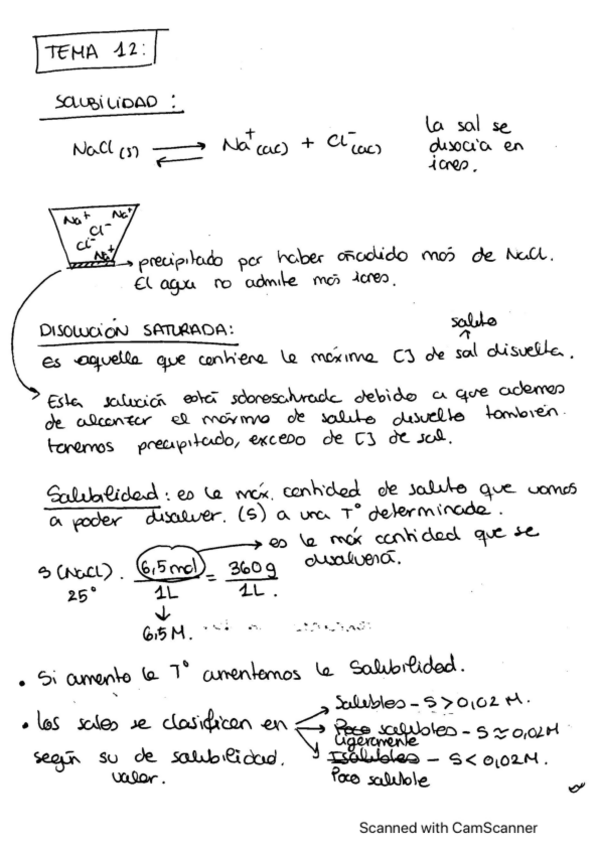 TEMA 12:
SOLUBILIDAD:
NaCl (s) ⇌ Na+ (ac) + Cl- (ac)
la sal se
disocia en
iones.
Na+ Na+
Cl-
Cl-
Na+
→ precipitado por haber añadido más de NaCl.
El agua no admite más iones.
DISOLUCIÓN SATURADA:
soluto
es aquella que contiene la máxima [] de sal disuelta.
Esta solución está sobresaturada debido a que además
de alcanzar el máximo de soluto disuelto también
tenemos precipitado, exceso de [] de sal.
Solubilidad: es la máx. cantidad de soluto que vamos
a poder disolver. (S) a una Tº determinada.
→ es la máx cantidad que se
disolverá.
S (NaCl). 6,5 mol = 360 g
25° 1L 1L.
↓
6,5 M.
• Si aumento la Tº aumentamos la Solubilidad.
Solubles - S > 0,02 M.
• Las sales se clasifican en Poco solubles - S ≈ 0,02 M
Ligeramente
según su de solubilidad. Insolubles - S < 0,02 M.
valor. Poco soluble
Scanned with CamScanner